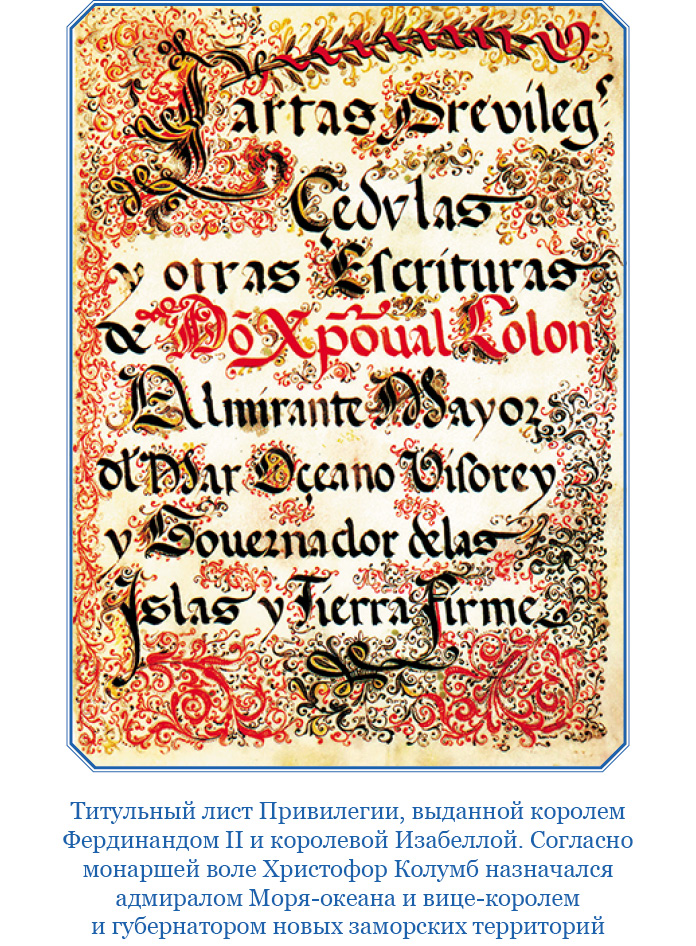 Cartas Previlegs
Çedvlas
y otras Escrituras
de Dõ Xpõual Colon
Almirante Mayor
dl Mar Oçeano Visorey
y Gouernador delas
Islas y Tierra Firme
Титульный лист Привилегии, выданной королем
Фердинандом II и королевой Изабеллой. Согласно
монаршей воле Христофор Колумб назначался
адмиралом Моря-океана и вице-королем
и губернатором новых заморских территорий